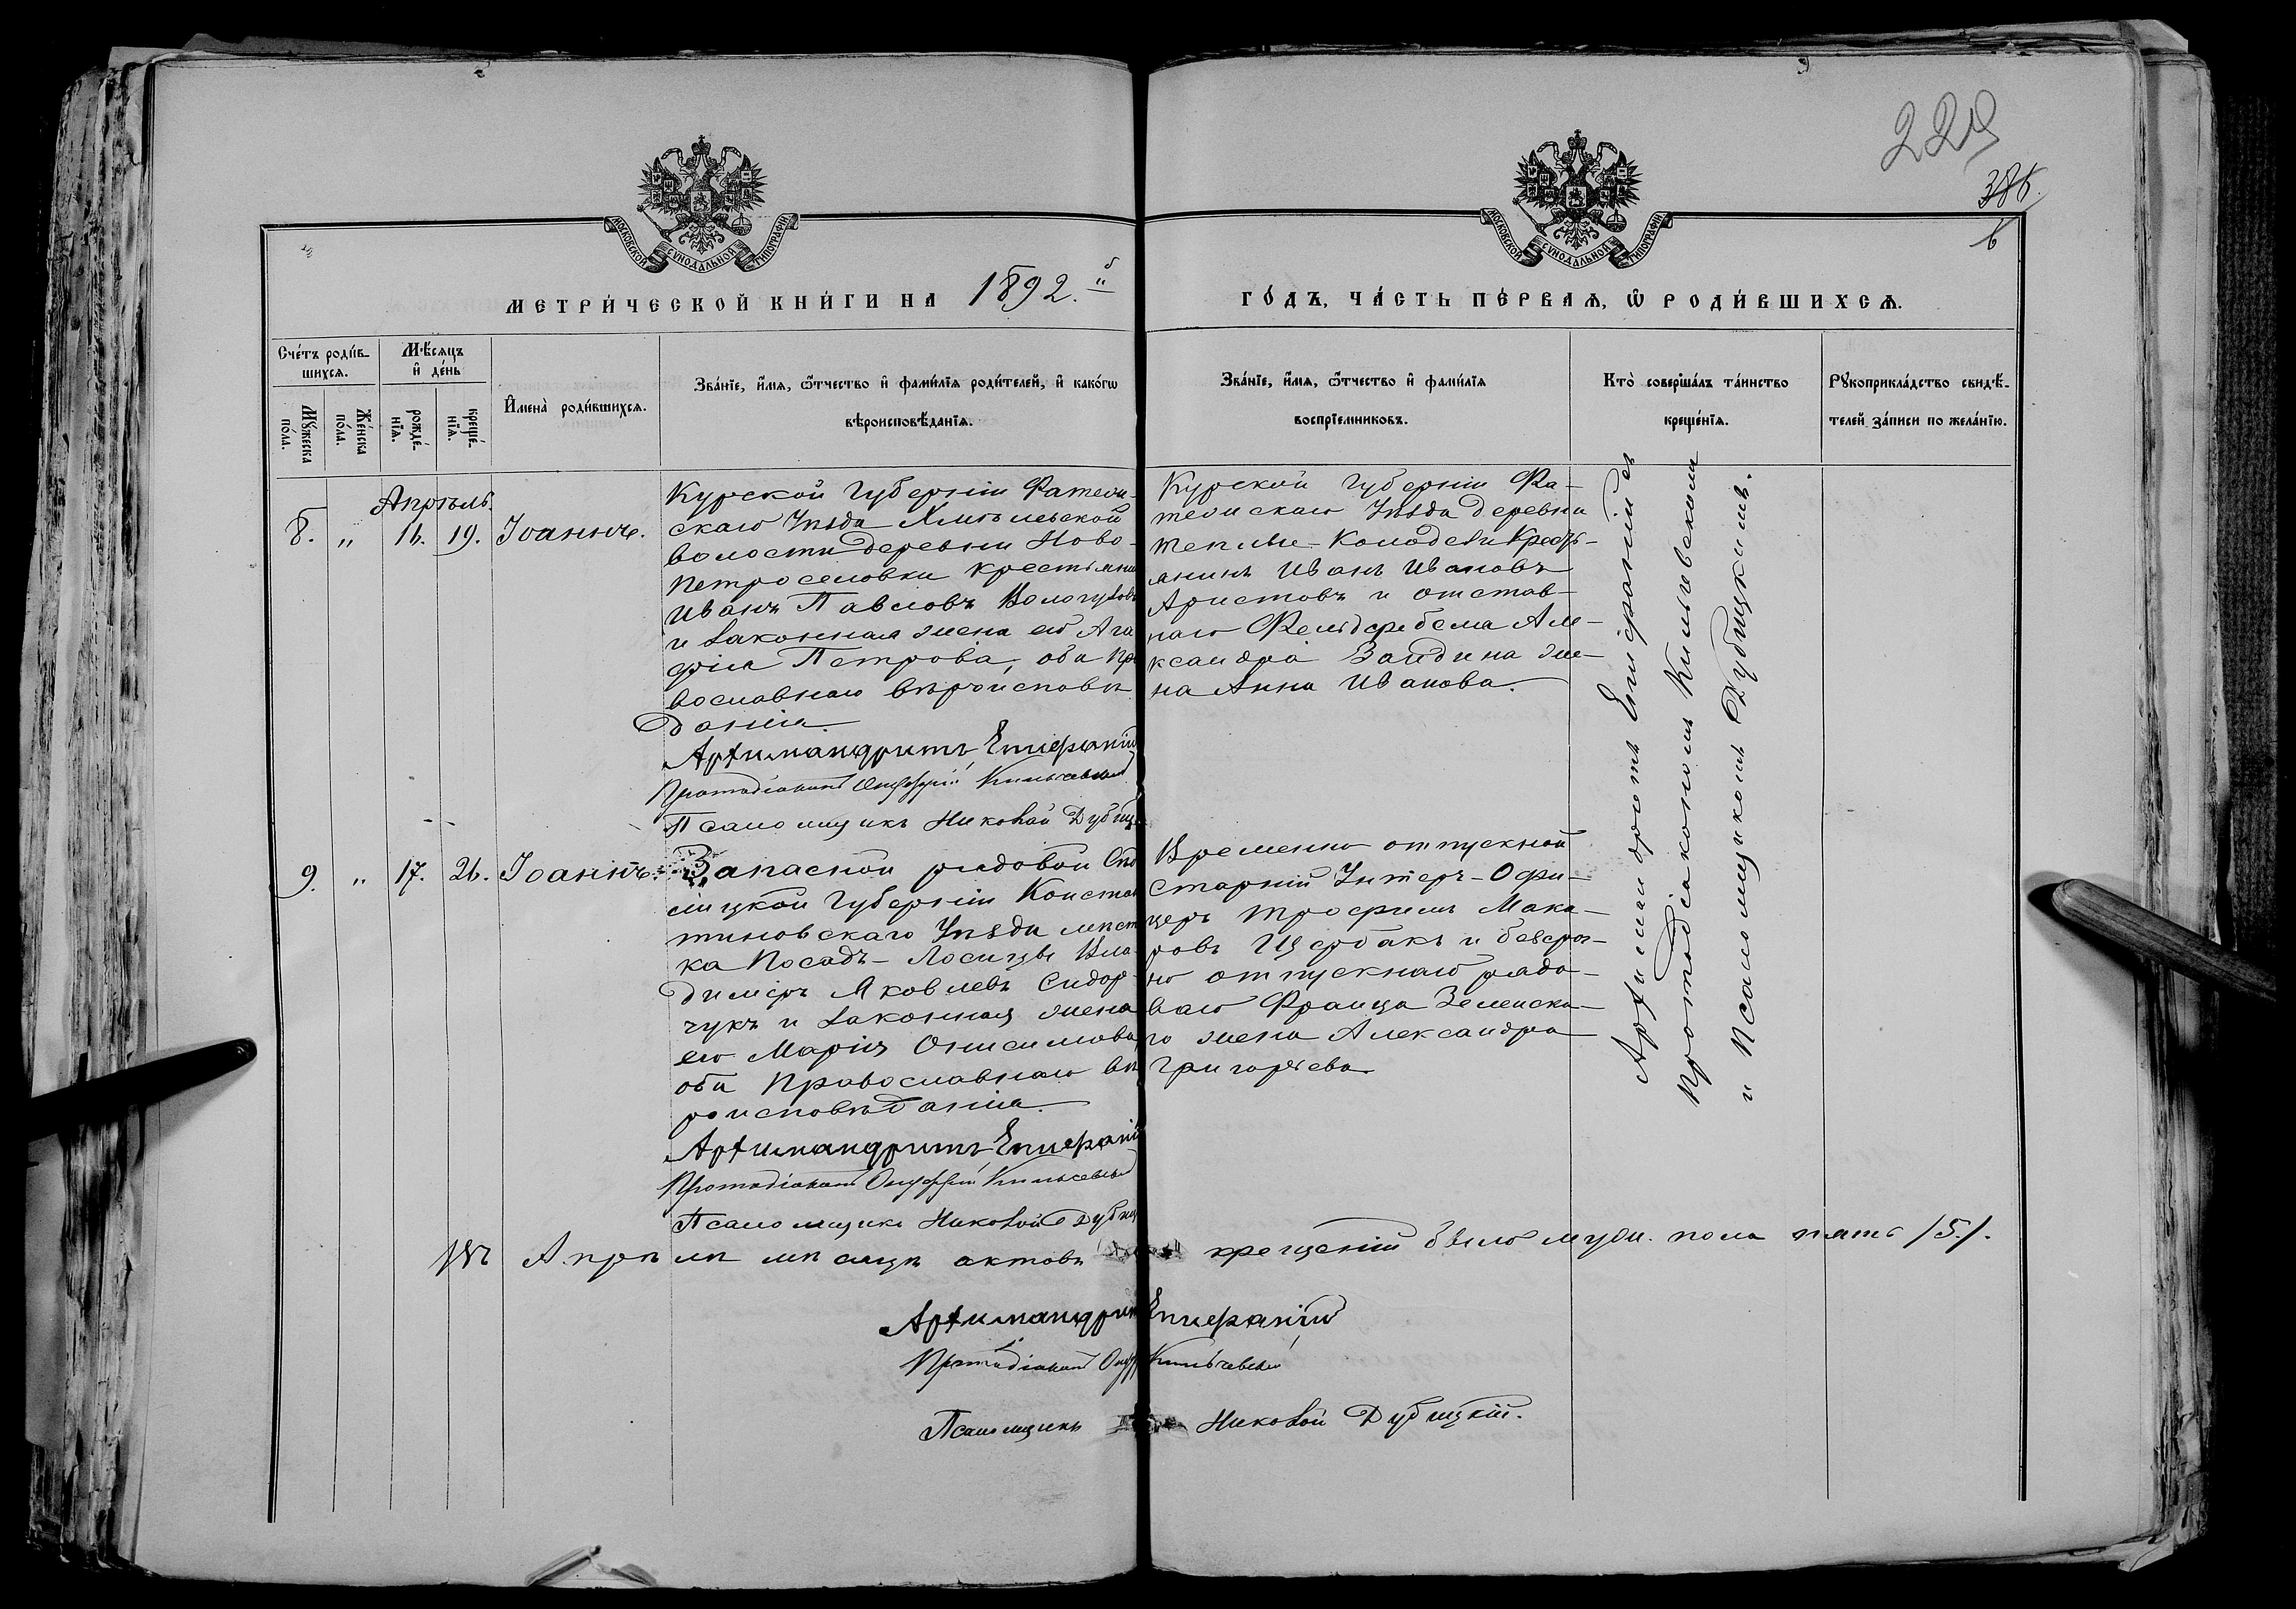 229
386.
6
МОСКОВСКОЙ СУНОДАЛЬНОЙ ТИПОГРАФІИ
МОСКОВСКОЙ СУНОДАЛЬНОЙ ТИПОГРАФІИ
МЕТРИ́ЧЕСКОЙ КНИ́ГИ НА 1892.й
ГО́ДЪ, ЧА́СТЬ ПЕ́РВАѦ, Ѡ РОДИ́ВШИХСѦ.
Сче́тъ роди́вшихсѧ.
Мꙋ́жеска по́ла.
Же́нска по́ла.
Мѣ́сѧцъ и҆ де́нь
рожде́нїѧ.
креще́нїѧ.
И҆мена̀ роди́вшихсѧ.
Зва́нїе, и҆́мѧ, ѻ҆́тчество и҆ фами́лїѧ роди́телей, и҆ како́гѡ
вѣроисповѣ́данїѧ.
Зва́нїе, и҆́мѧ, ѻ҆́тчество и҆ фами́лїѧ
воспрїемниковъ.
Кто̀ соверша́лъ та́инство
креще́нїѧ.
Рꙋкоприкла́дство свидѣ́-
телей за́писи по жела́нїю.
Апрѣль.
8. " 16. 19. Іоаннъ.
Курской губерніи Фатеж-
скаго Уѣзда Хмѣлевской
волости деревни Ново-
петроселовки крестьянинъ
Иванъ Павловъ
и законная жена его Ага
фія Петрова, оба пра
вославнаго вѣроисповѣ
данія.
Архимандритъ Епифаній
Протодіаконъ Онуфрій Кильчевскій
Псаломщикъ Николай Дубиц
Курской губерніи Фа-
тежскаго Уѣзда деревни
Теплые-Колодези Кресть-
янинъ Иванъ Ивановъ
Аристовъ и отстав-
наго Фельдфебеля Але-
ксандра Зайдина же-
на Анна Иванова.
Архимандритъ Епифаній съ
Протодіакономъ Кильчевскимъ
и Псаломщикомъ Дубицкимъ.
9. " 17. 26. Іоаннъ.
Запасной рядовой Сѣд
лецкой губерніи Констан
тиновскаго Уѣзда мѣстеч
ка Посадъ-Лосицы Вла-
димиръ Яковлевъ Сидор-
чукъ и законная жена
его Марія Онисимова,
оба Православнаго вѣ
роисповѣданія.
Архимандритъ Епифаній
Протодіаконъ Онуфрій Кильчевскій
Псаломщикъ Николай Дубиц
Временно отпускной
Старшій Унтеръ-Офи-
церъ Трофимъ Мака-
ровъ Щербакъ и безсроч-
но отпускнаго рядо-
ваго Франца Зеленска-
го жена Александра
Григорьева.
Въ Апрѣлѣ мѣсяцѣ актовъ крещенія было муж. пола пять /5./.
Архимандритъ Епифаній
Протодіаконъ Онуф Кильчевскій
Псаломщикъ Николай Дубицкій.